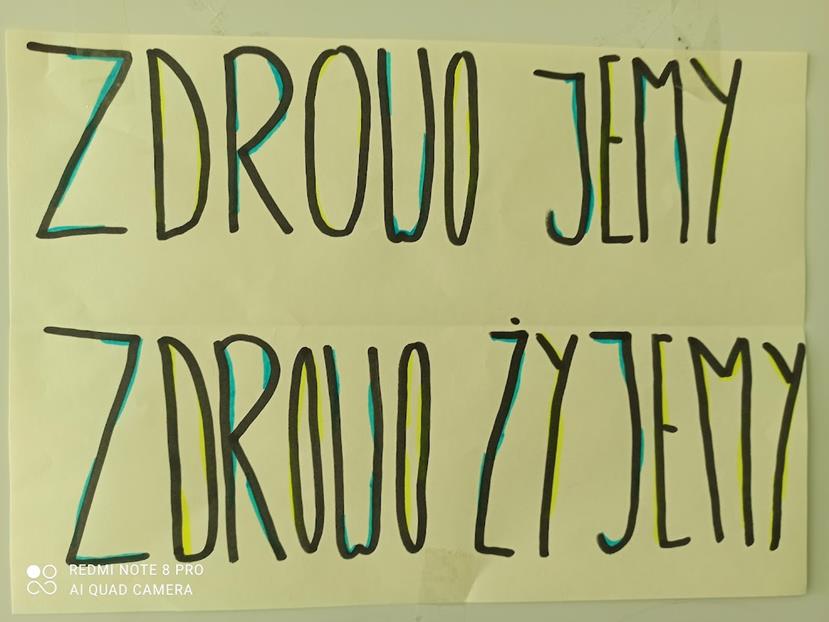 ZDROWO JEMY
ZDROWO ŻYJEMY
REDMI NOTE 8 PRO
AI QUAD CAMERA